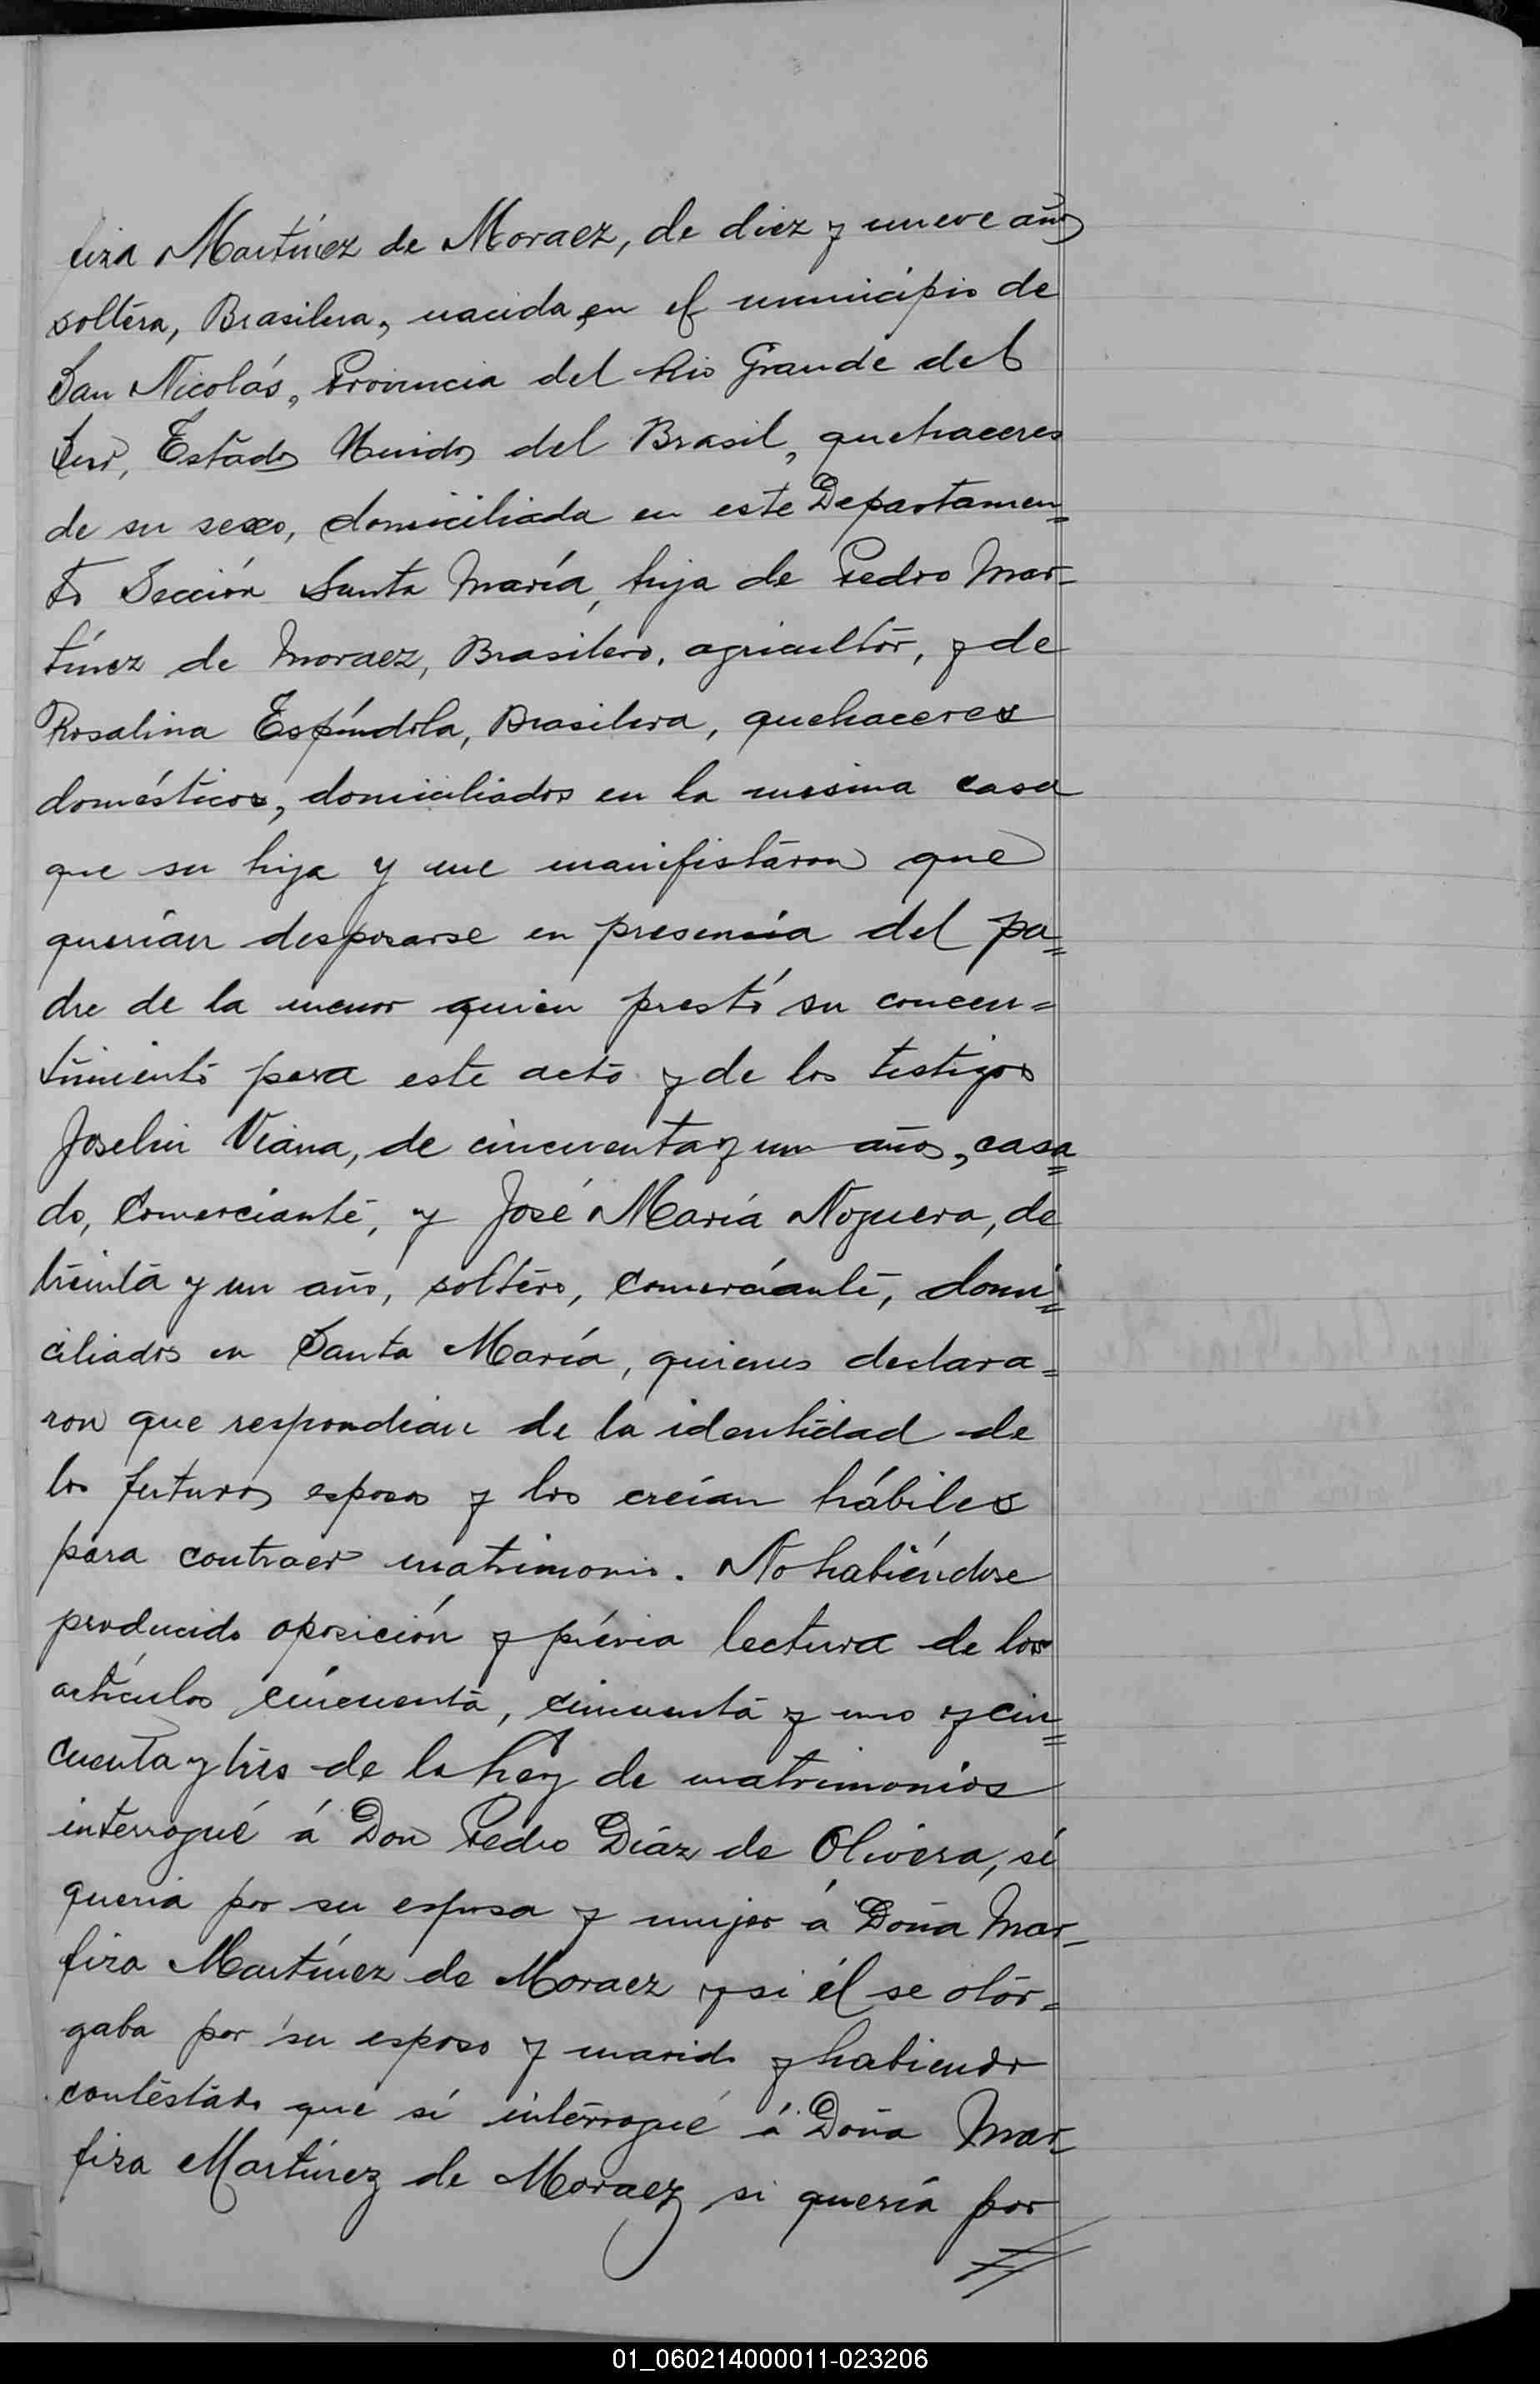 fira Martínez de Moraez, de diez y nueve años
soltera, Brasilera, nacida en el municipio de
San Nicolás, Provincia del Rio Grande del
Sur, Estados Unidos del Brasil, quehaceres
de su sexo, domiciliada en este Departamen=
to Sección Santa María, hija de Pedro Mar-
tínez de Moraez, Brasilero, agricultor, y de
Rosalina Espíndola, Brasilera, quehaceres
domésticos, domiciliados en la misma casa
que su hija y me manifistaron que
querían desposarse en presencia del pa=
dre de la menor quien prestó su concen=
timiento para este acto y de los testigos
Joselin Viana, de cincuenta y un años, casa=
do, Comerciante, y José María Noguera, de
treinta y un año, soltero, Comerciante, domi=
ciliados en Santa María, quienes declara=
ron que respondían de la identidad de
los futuros esposos y los creían hábiles
para contraer matrimonio. No habiéndose
producido oposición y prévia lectura de los
artículos cincuenta, cincuenta y uno y cin=
cuenta y tres de la Ley de matrimonios
interrogué á Don Pedro Díaz de Olivera, si
queria por su esposa y mujer á Doña Mar-
fira Martínez de Moraez y si él se otor=
gaba por su esposo y marido y habiendo
contestado que sí interrogué á Doña Mar-
fira Martínez de Moraez si quería por
01_060214000011-023206